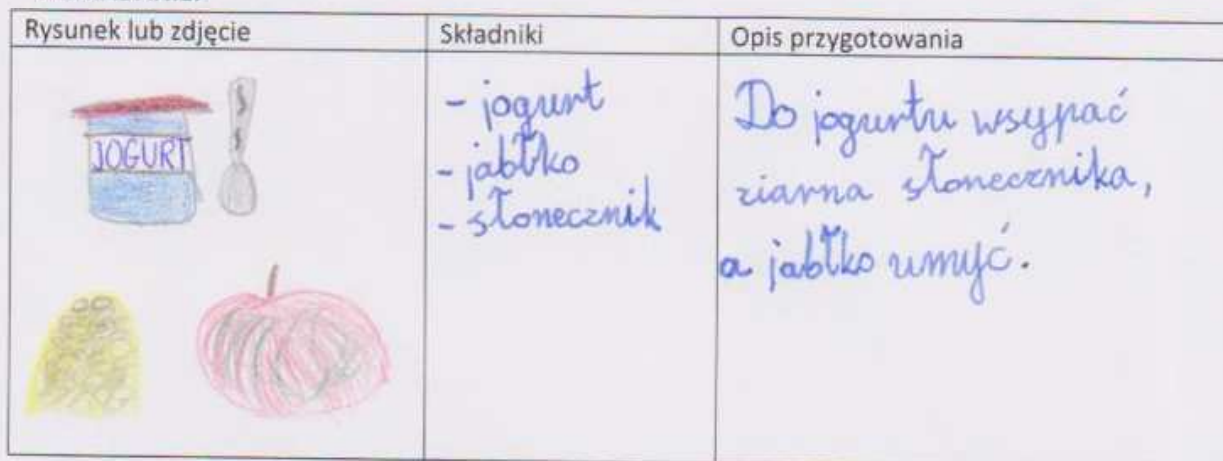 Rysunek lub zdjęcie
Składniki
Opis przygotowania
JOGURT
- jogurt
- jabłko
- słonecznik
Do jogurtu wsypać
ziarna słonecznika,
a jabłko umyć.